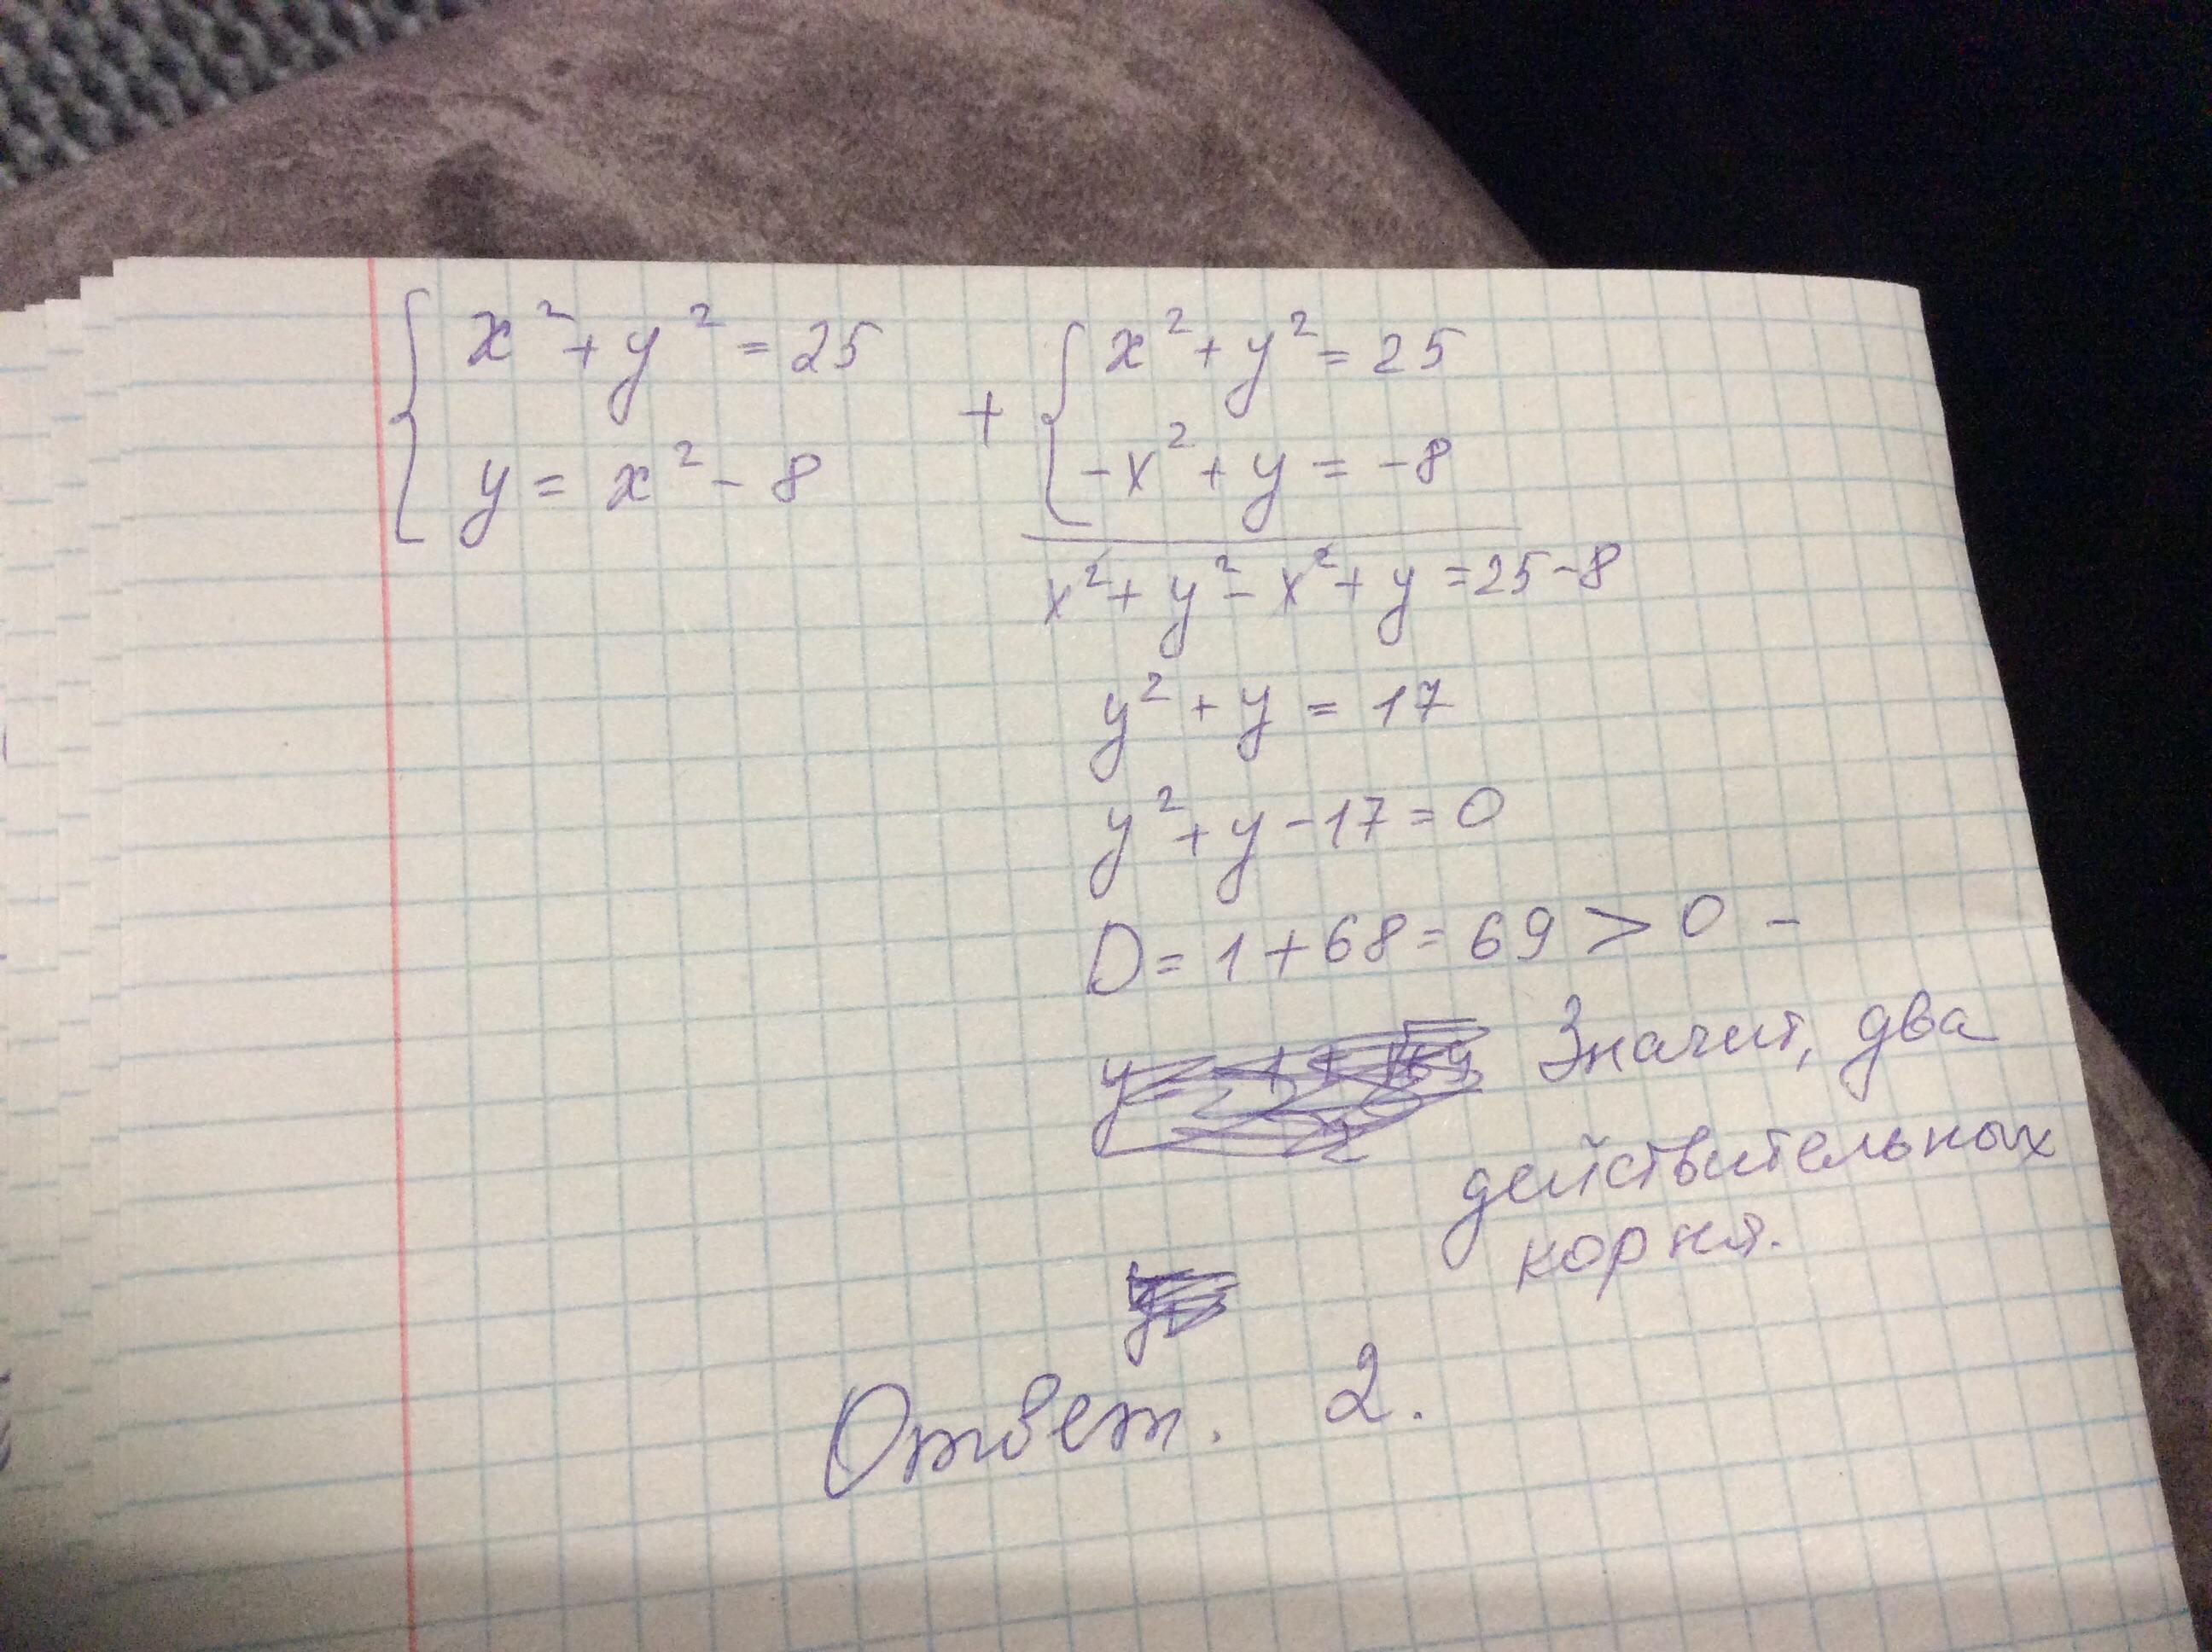 x² + y² = 25
y = x² - 8
+ x² + y² = 25
-x² + y = -8
x² + y² - x² + y = 25-8
y² + y = 17
y² + y - 17 = 0
D = 1 + 68 = 69 > 0 -
Значит, два
действительных
корня.
Ответ. 2.